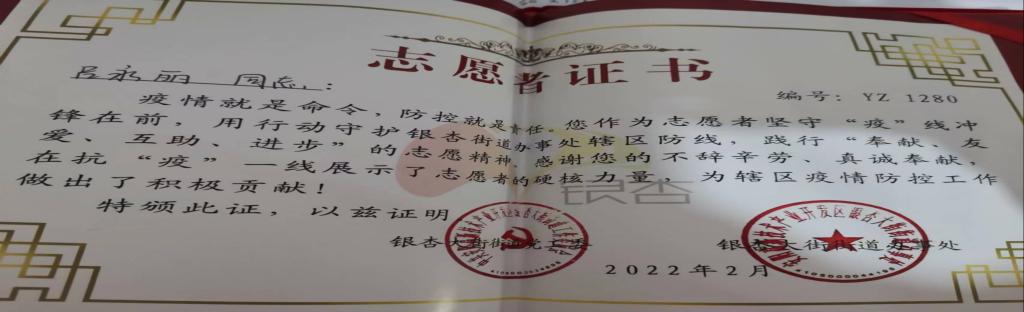 志愿者证书
吕永丽 同志:
编号: YZ 1280
疫情就是命令,防控就是责任。您作为志愿者坚守“疫”线冲
锋在前,用行动守护银杏街道办事处辖区防线,践行“奉献、友
爱、互助、进步”的志愿精神,感谢您的不辞辛劳、真诚奉献,
在抗“疫”一线展示了志愿者的硬核力量,为辖区疫情防控工作
做出了积极贡献!
银杏
特颁此证,以兹证明
银杏大街街道党工委
银杏大街街道办事处
2022年2月